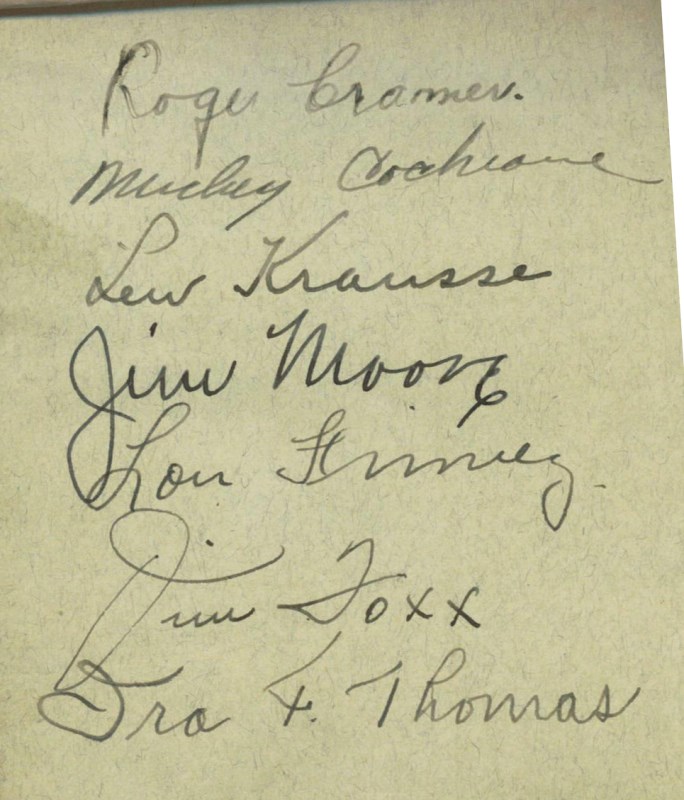 Roger Cramer.
Mickey Cochrane
Lew Krausse
Jim Moore
Lou Finney
Jim Foxx
Ira F. Thomas